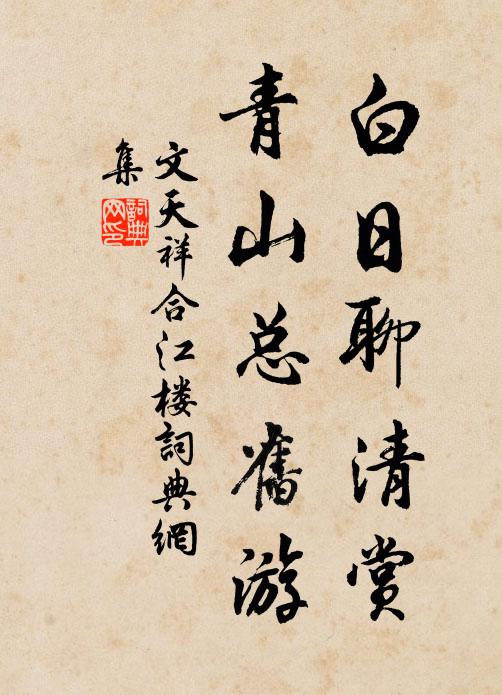 白日聊清赏
青山总舊游
文天祥合江楼詞典網
集
詞典
网印